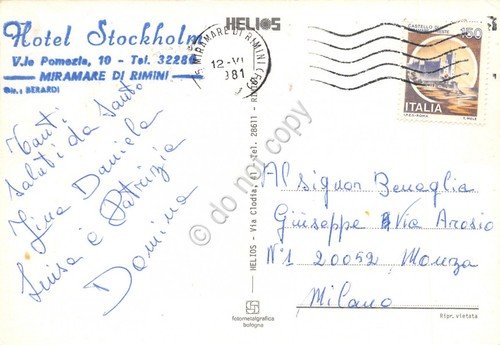 Hotel Stockholm
V.le Pomezia, 10 - Tel. 32280
MIRAMARE DI RIMINI
Dir.: BERARDI
HELIOS
MIRAMARE DI RIMINI (FO)
12-VI
981
CASTELLO DI
150
ITALIA
Tanti
Saluti da Santo
Lina Daniela
Luisa e Patrizia
Domina
HELIOS - Via Clodia, 61 - Tel. 28611 -
Al Signor Benaglia
Giuseppe Via Arosio
N°1 20052 Monza
Milano
fotometalgrafica
bologna
Ripr. vietata
© do not copy